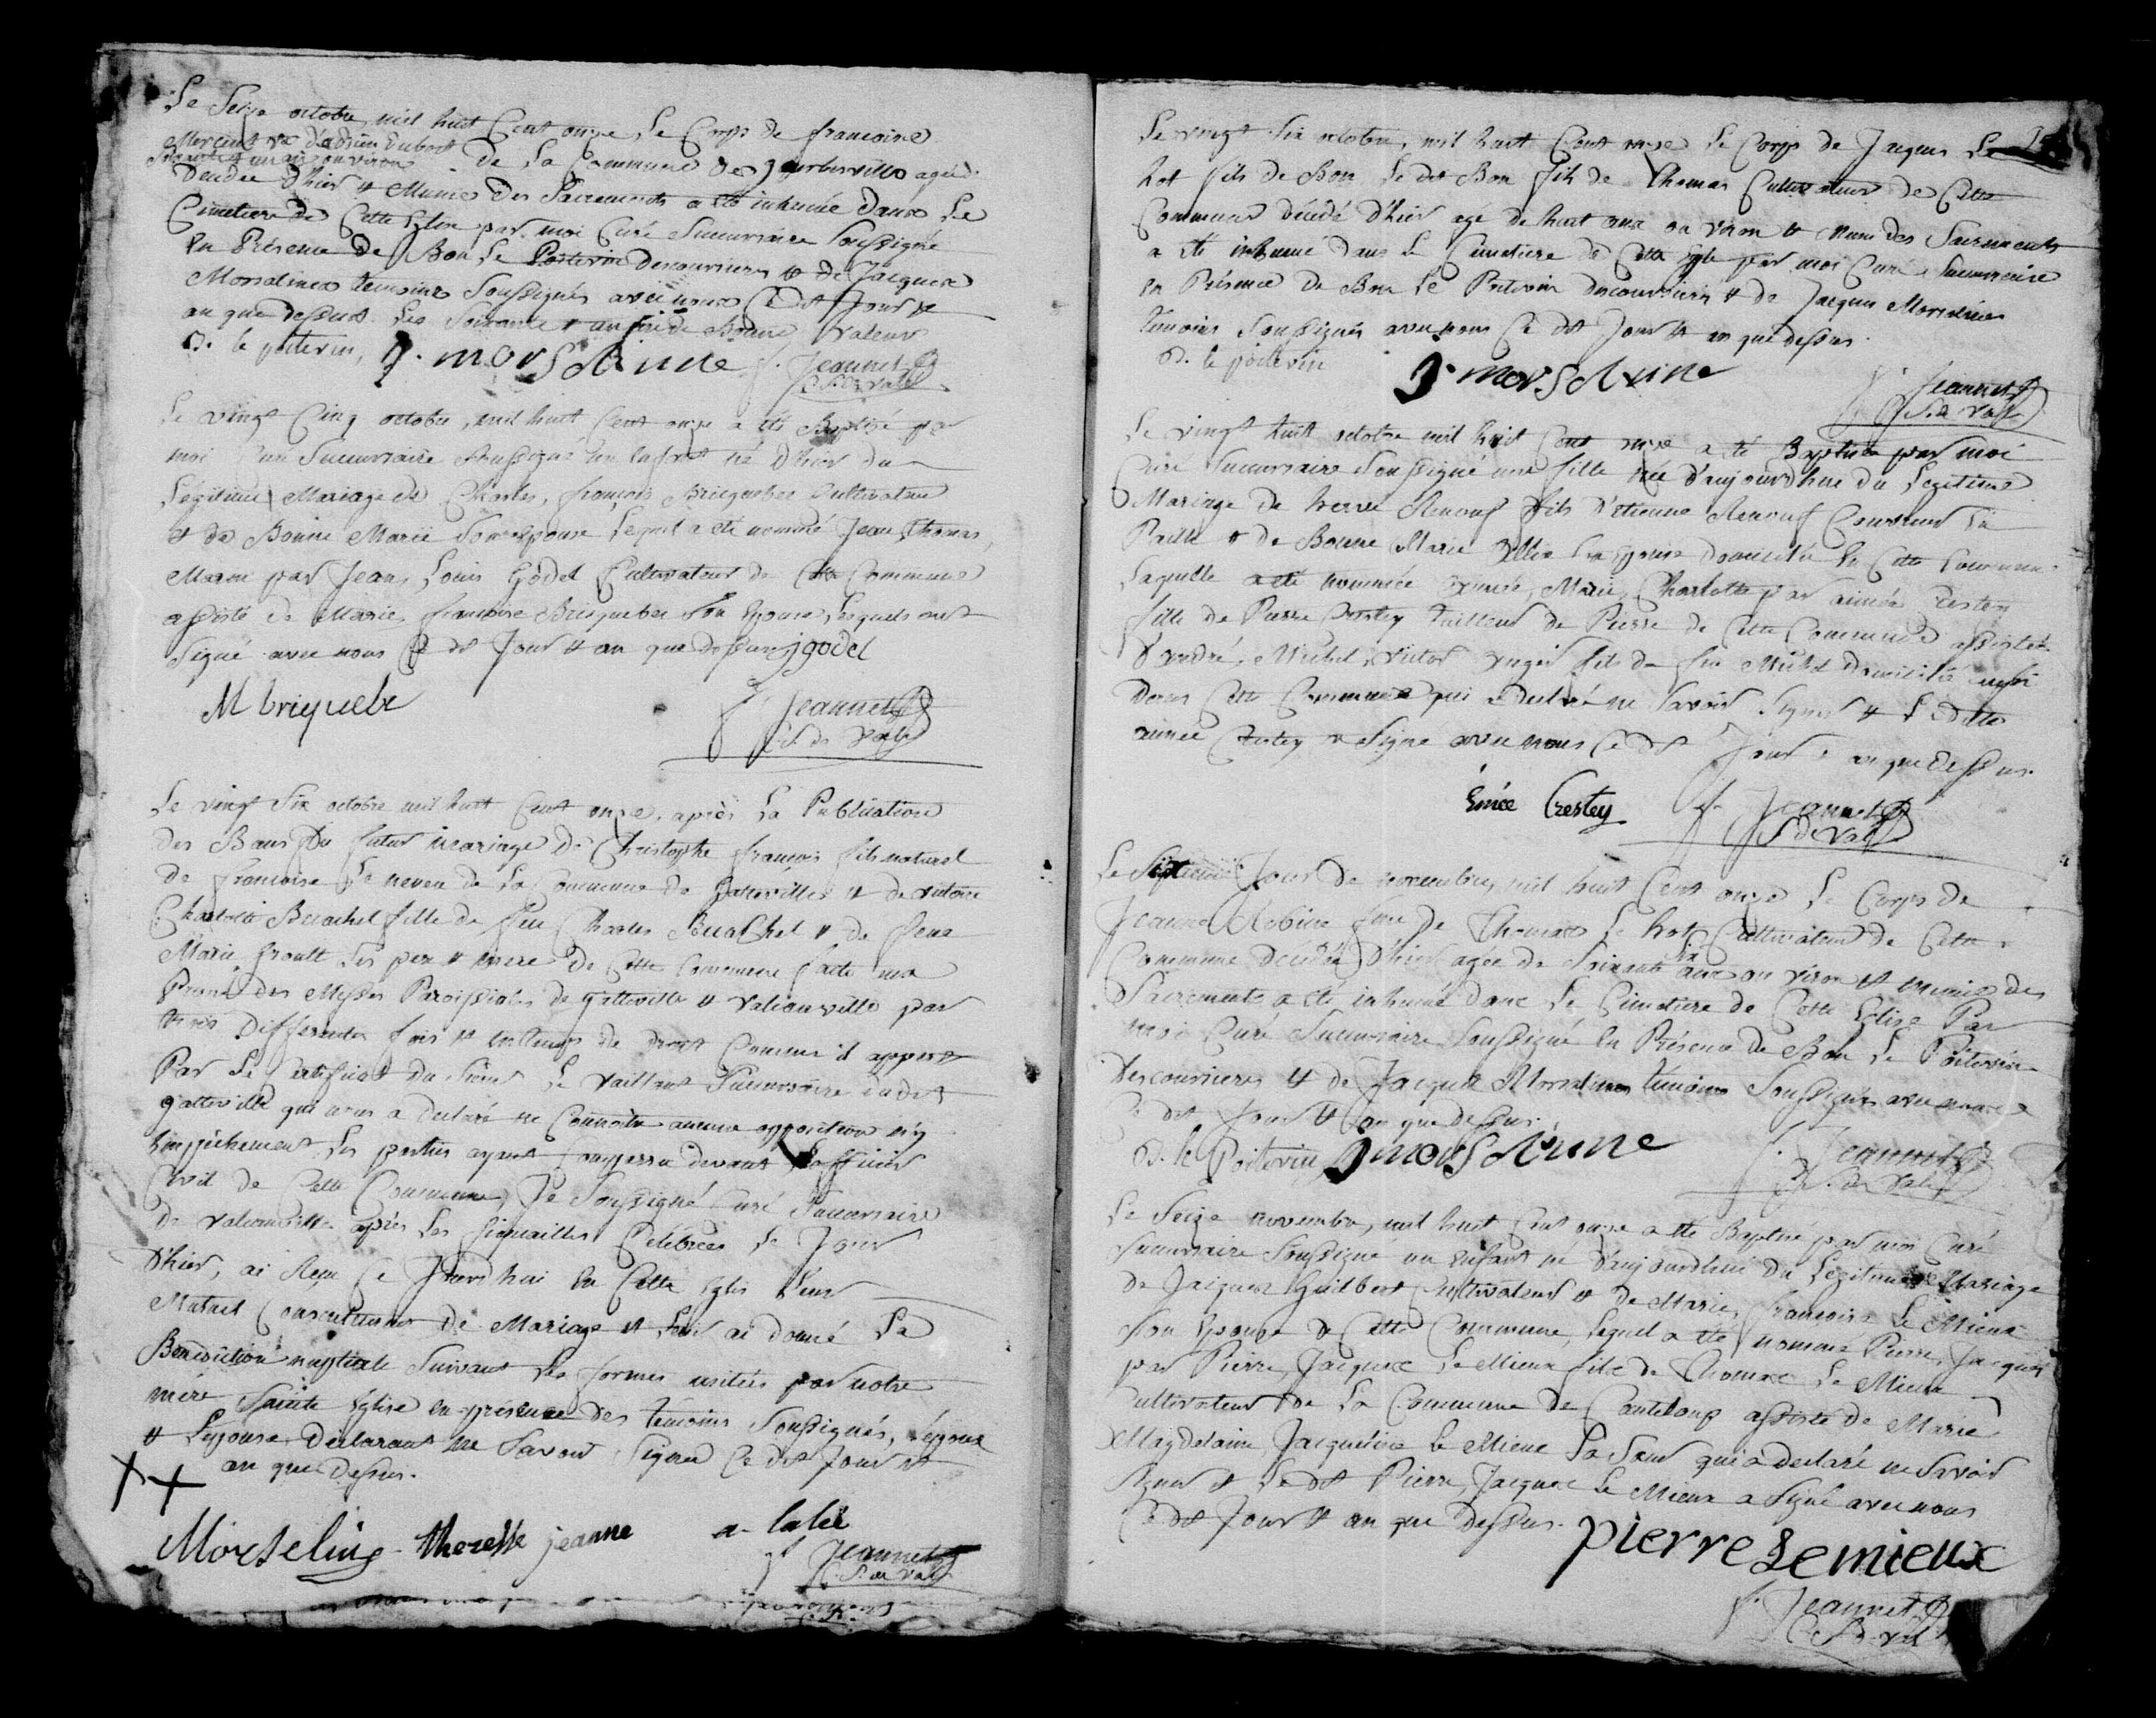 Le Seize octobre, mil huit Cent onze Le Corps de francoise
Mercent ve d'adrien Dubost
Soixante & un ans ou viron de La Commune de agée
decedée d'hier & Munie Des Sacrements a été inhumée Dans Le
Cimetiere de Cette Eglise par moi Curé Succursaire Soussigné
En Présence de Bon Le Poitevin Descourrieres & de Jacques
Morsalines temoins Soussignés avec nous Ce Dit Jour &
an que dessus. Les Soixante & un de Bonne Valeur
B. le poitevin, J. morSaline f. Jeannet
C. S. de Val
Le vingt Cinq octobre, mil huit Cent onze a été Baptisé par
moi Curé Succursaire Soussigné un Enfant né d'hier du
Légitime Mariage de Charles, françois Bricquebec Cultivateur
& de Bonne Marie Son epouse Lequel a été nommé Jean Thomas,
par Jean, Louis Godel Cultivateur de Cette Commune
assisté de Marie, francoise Bricquebec Son Epouse, Lesquels ont
Signé avec nous Ce dit Jour & an que dessus jgodel
M briquebe
f. Jeannet
C. S. de Val
Le vingt Six octobre mil huit Cent onze, après La Publication
des Bans Du futur mariage De Christophe françois fils naturel
de francoise Le neveu de La Commune de gatteville & de victoire
Charlotte Buhel fille de feu Charles Buhel & de feue
Marie froult Ses pere & mere de Cette Commune faite aux
Prones des Messes Paroissiales de gatteville & Valcanville par
trois Differentes fois & en temps de Droit Comme il appert
Par Le Certificat du Sieur Le Vaillant Succursaire dudit
gatteville qui nous a declaré ne Connoitre aucune opposition n'y
Empêchement, Les parties ayant Comparu devant L'officier
Civil de Cette Commune, Je Soussigné Curé Succursaire
de Valcanville après Les fiançailles Célébrées Le Jour
D'hier, ai Reçu Ce Jourd'hui En Cette Eglise Leur
Mutuel Consentement De Mariage & Leur ai donné La
Bénédiction nuptiale Suivant Les formes usitées par notre
mère Sainte Eglise en présence des temoins Soussignés, L'epoux
& L'epouse Declarant ne Savoir Signer Ce dit Jour &
an que Dessus.
Morseling theresse jeanne a. lalée
f. Jeannet
C. S. de Val
Le vingt Six octobre, mil huit Cent onze Le Corps de Jacques Le
hot fils de Bon Le dit Bon fils de Thomas Cultivateur de Cette
Commune décédé d'hier agé de huit ans ou viron & muni des Sacrements
a été inhumé Dans Le Cimetiere de Cette Eglise par moi Curé Succursaire
En Présence de Bon Le Poitevin Descourrieres & de Jacques Morsalines
témoins Soussignés avec nous Ce dit Jour & an que dessus.
B. le poitevin J. morSaline
f. Jeannet
C. S. de Val
Le vingt huit octobre mil huit Cent onze a été Baptisée par moi
Curé Succursaire Soussigné une fille née d'aujourd'hui du Legitime
Mariage de herve Renouf fils d'etienne Renouf Couvreur En
Paille & de Bonne Marie Son Epouse Domiciliés En Cette Commune
Laquelle a été nommée Aimée, Marie, Charlotte par aimée Crestey
fille de Pierre Crestey tailleur de Pierre de Cette Commune assistée
d'andré, Michel, victor fils de feu Michel Domicilié aussi
Dans Cette Commune qui a Declaré ne Savoir Signer & La Ditte
aimée Crestey a Signé avec nous Ce dit Jour & an que dessus.
Émée Crestey f. Jeannet
C. S. de Val
Le Septieme Jour de novembre, mil huit Cent onze Le Corps de
Jeanne Robine fme de Thomas Le hot Cultivateur de Cette
Commune Décédée D'hier agée de Soixante Six ans ou viron & munie des
Sacrements a été inhumé dans Le Cimetiere de Cette Eglise Par
moi Curé Succursaire Soussigné En Présence de Bon Le Poitevin
Descourrieres & de Jacques Morsalines témoins Soussignés avec nous
Ce dit Jour & an que dessus.
B. le Poitevin J morSaline f. Jeannet
C. S. de Val
Le Seize novembre, mil huit Cent onze a été Baptisé par moi Curé
Succursaire Soussigné un Enfant né d'aujourd'hui du Légitime Mariage
de Jacques Guilbert Cultivateur & de Marie, francoise Le Mieux
Son Epouse de Cette Commune, Lequel a été nommé Pierre, Jacques
par Pierre, Jacques Le Mieux fils de Thomas Le Mieux
Cultivateur De La Commune De Canteloup assisté de Marie
Magdelaine, Jacqueline Le Mieux Sa Soeur qui a declaré ne Savoir
Signer & Le dit Pierre, Jacques Le Mieux a Signé avec nous
Ce dit Jour & an que Dessus.
pierre Lemieux
f. Jeannet
C. S. de Val